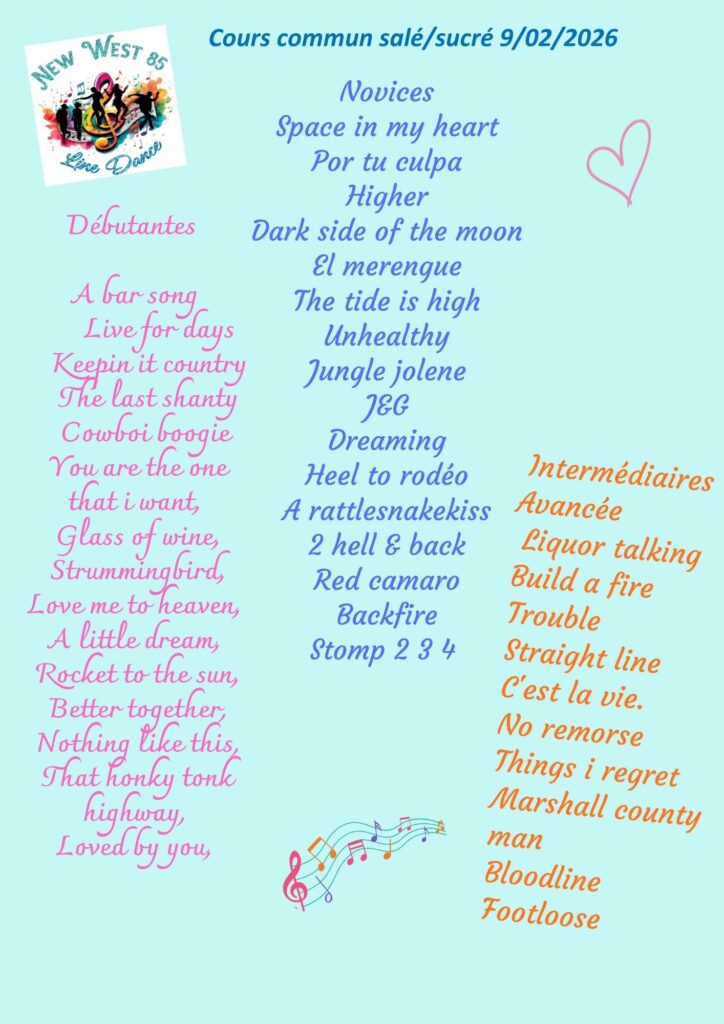 NEW WEST 85
Line Dance
Cours commun salé/sucré 9/02/2026
Débutantes
A bar song
Live for days
Keepin it country
The last shanty
Cowboi boogie
You are the one
that i want,
Glass of wine,
Strummingbird,
Love me to heaven,
A little dream,
Rocket to the sun,
Better together,
Nothing like this,
That honky tonk
highway,
Loved by you,
Novices
Space in my heart
Por tu culpa
Higher
Dark side of the moon
El merengue
The tide is high
Unhealthy
Jungle jolene
J&G
Dreaming
Heel to rodéo
A rattlesnakekiss
2 hell & back
Red camaro
Backfire
Stomp 2 3 4
Intermédiaires
Avancée
Liquor talking
Build a fire
Trouble
Straight line
C'est la vie.
No remorse
Things i regret
Marshall county
man
Bloodline
Footloose